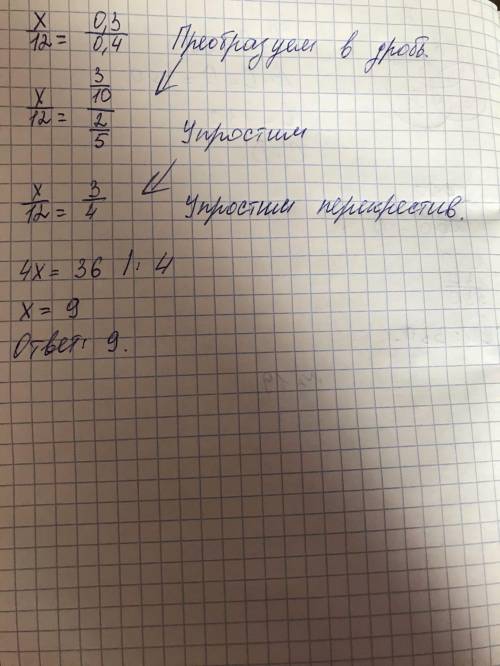 x/12 = 0,3/0,4 Преобразуем в дробь.
x/12 = 3/10 / 2/5 Упростим
x/12 = 3/4 Упростим перекрестив.
4x = 36 |: 4
x = 9
Ответ: 9.